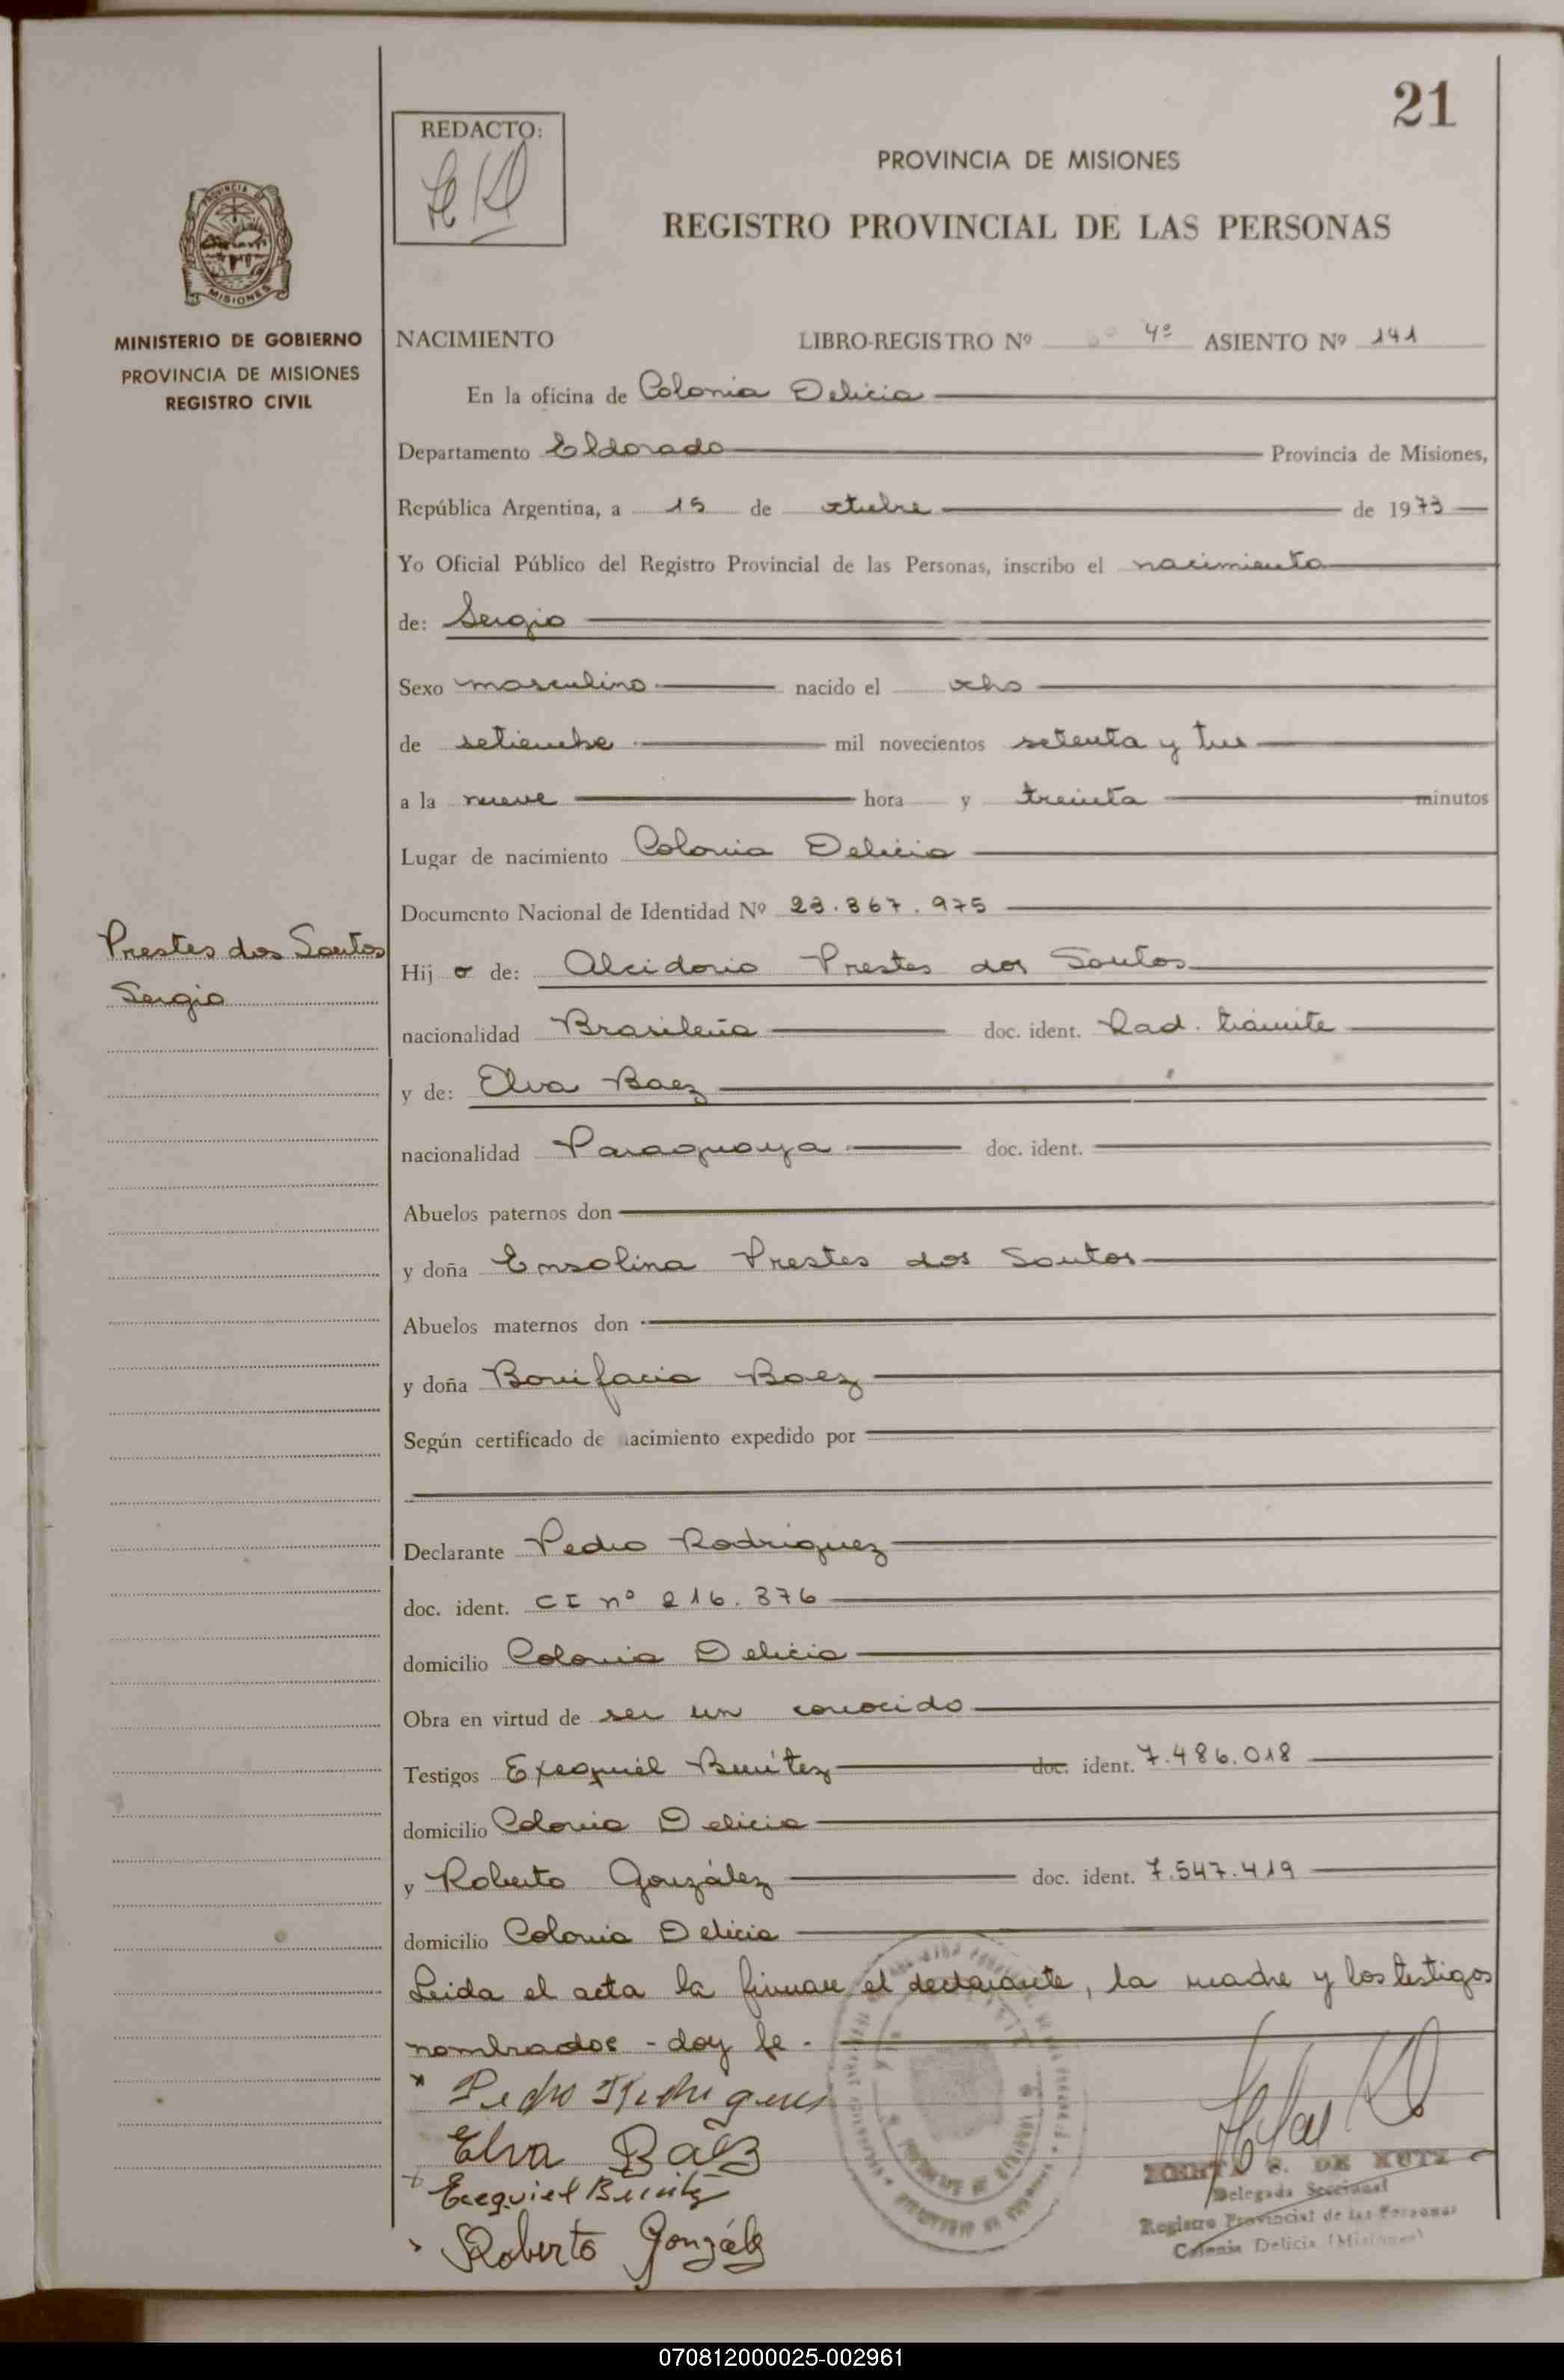 21
REDACTO:
PROVINCIA DE MISIONES
REGISTRO PROVINCIAL DE LAS PERSONAS
PROVINCIA DE
MISIONES
MINISTERIO DE GOBIERNO
PROVINCIA DE MISIONES
REGISTRO CIVIL
NACIMIENTO LIBRO-REGISTRO Nº 4º ASIENTO Nº 141
En la oficina de Colonia Delicia
Departamento Eldorado Provincia de Misiones,
República Argentina, a 15 de octubre de 1973
Yo Oficial Público del Registro Provincial de las Personas, inscribo el nacimiento
de: Sergio
Sexo masculino nacido el ocho
de setiembre mil novecientos setenta y tres
a la nueve hora y treinta minutos
Lugar de nacimiento Colonia Delicia
Documento Nacional de Identidad Nº 23.367.975
Prestes dos Santos
Sergio
Hijo de: Alcidorio Prestes dos Santos
nacionalidad Brasileña doc. ident. Rad. trámite
y de: Elva Baez
nacionalidad Paraguaya doc. ident.
Abuelos paternos don
y doña Ensolina Prestes dos Santos
Abuelos maternos don
y doña Bonifacia Baez
Según certificado de nacimiento expedido por
Declarante Pedro Rodriguez
doc. ident. CI nº 216.376
domicilio Colonia Delicia
Obra en virtud de ser un conocido
Testigos Exequiel Benítez doc. ident. 7.486.018
domicilio Colonia Delicia
y Roberto González doc. ident. 7.547.419
domicilio Colonia Delicia
Leida el acta la firman el declarante, la madre y los testigos
nombrados - doy fe.
Elva Báez
Exequiel Benitez
Roberto González
DE KUTZ
Delegada Seccional
Registro Provincial de las Personas
Colonia Delicia (Misiones)
070812000025-002961